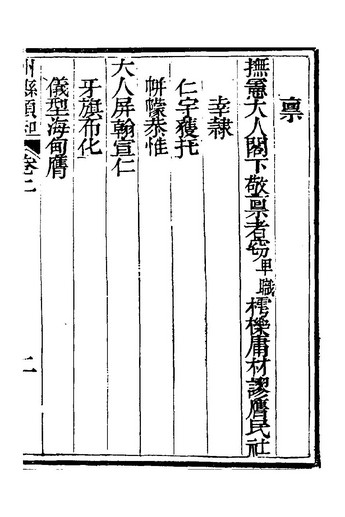 禀
撫憲大人閣下敬禀者竊卑職樗櫟庸材謬膺民社
幸隸
仁宇獲托
帡幪恭惟
大人屏翰宣仁
牙旗布化
儀型海甸膺
卷二
二